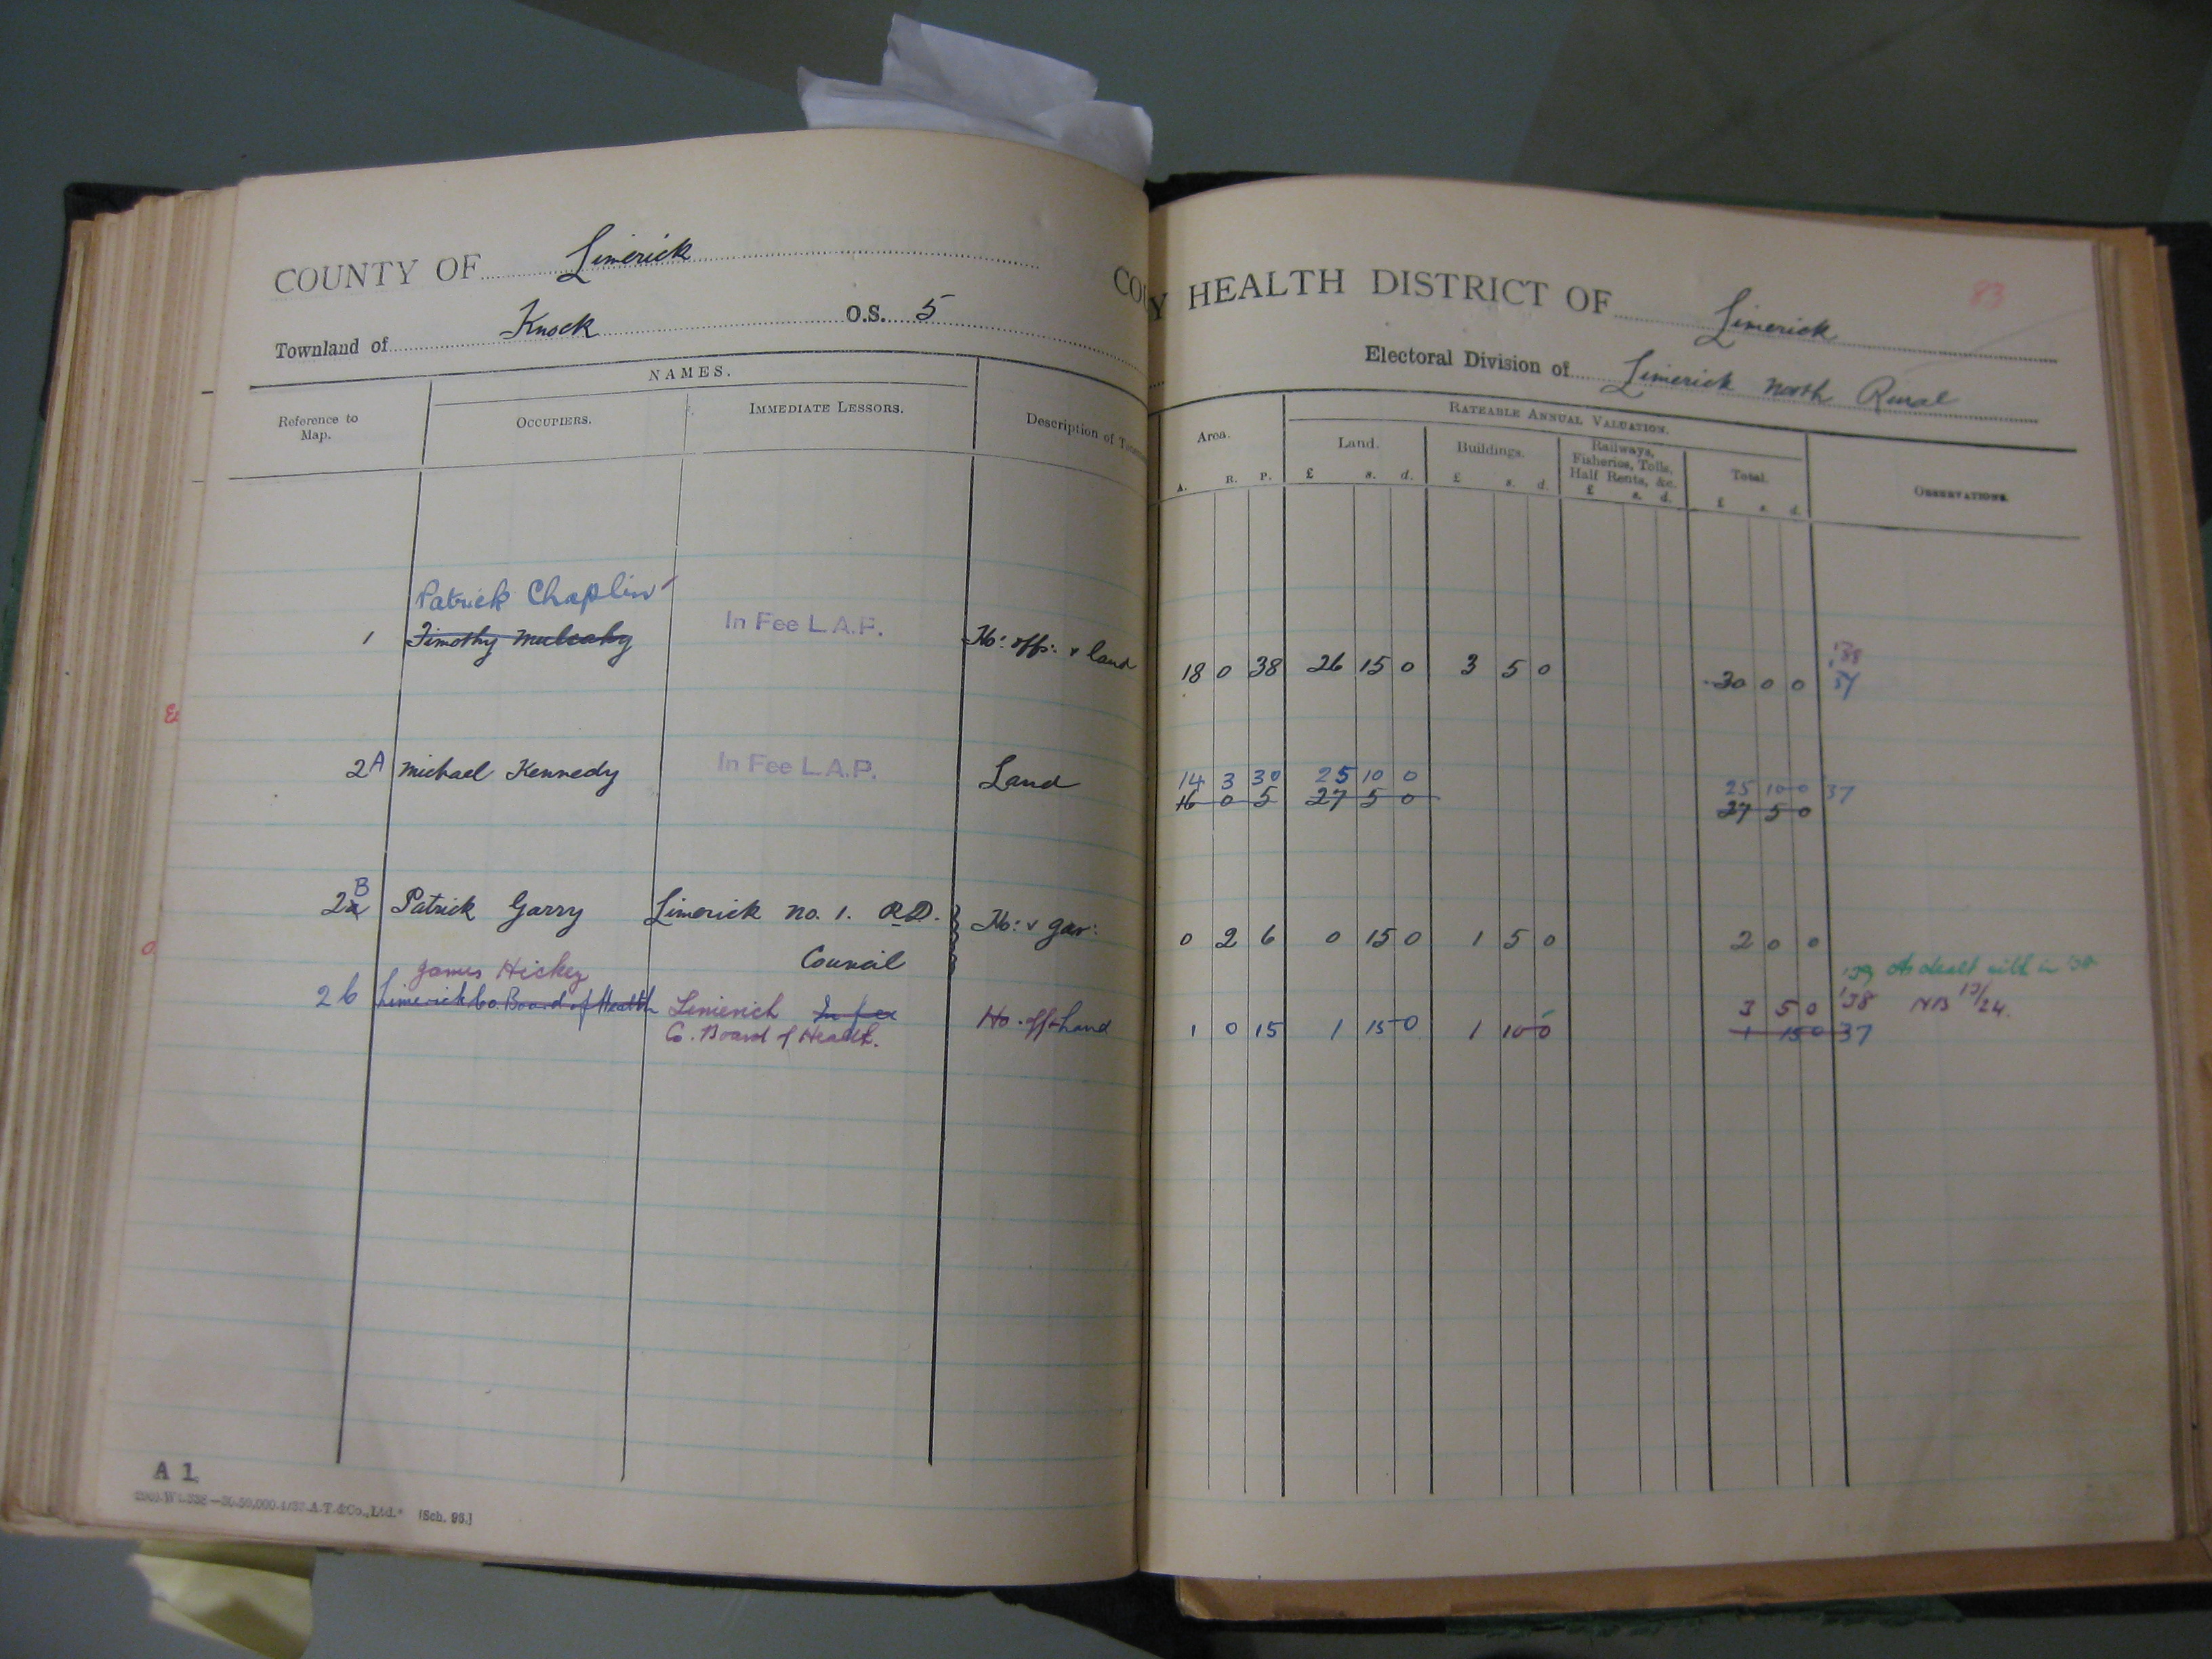 COUNTY OF Limerick
Townland of Knock O.S. 5
NAMES.
Reference to Map.
OCCUPIERS.
IMMEDIATE LESSORS.
Description of
Patrick Chaplin
1 Timothy Mulcahy In Fee L.A.P. Ho: offs: & land
2A Michael Kennedy In Fee L.A.P. Land
B
2a Patrick Garry Limerick No. 1. R.D. Ho: & gar:
Council
James Hickey
2b Limerick Co. Board of Health Limerick In fee Ho. off & land
Co. Board of Health.
A 1.
A.T.&Co., Ltd. [Sch. 96.]
83
Y HEALTH DISTRICT OF Limerick
Electoral Division of Limerick North Rural
RATEABLE ANNUAL VALUATION.
Area. Land. Buildings. Railways, Fisheries, Tolls, Half Rents, &c. Total. OBSERVATIONS
A. R. P. £ s. d. £ s. d. £ s. d. £ s. d.
18 0 38 26 15 0 3 5 0 30 0 0 37
14 3 30 25 10 0 25 10 0 37
16 0 5 27 5 0 27 5 0
0 2 6 0 15 0 1 5 0 2 0 0
'39 As dealt with in '38
3 5 0 '38 NB 13/24.
1 0 15 1 15 0 1 10 0 1 15 0 37